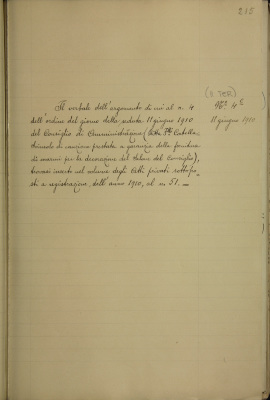 215
(11 TER)
N.º 4.
11 giugno 1910
Il verbale dell'argomento di cui al n. 4
dell'ordine del giorno della seduta 11 giugno 1910
del Consiglio di Amministrazione (
di cauzione prestata a garanzia della fornitura
di per la decorazione del Salone del Consiglio),
trovasi inserto nel volume degli Atti privati sottopo-
sti a registrazione dell'anno 1910, al n. 51.-